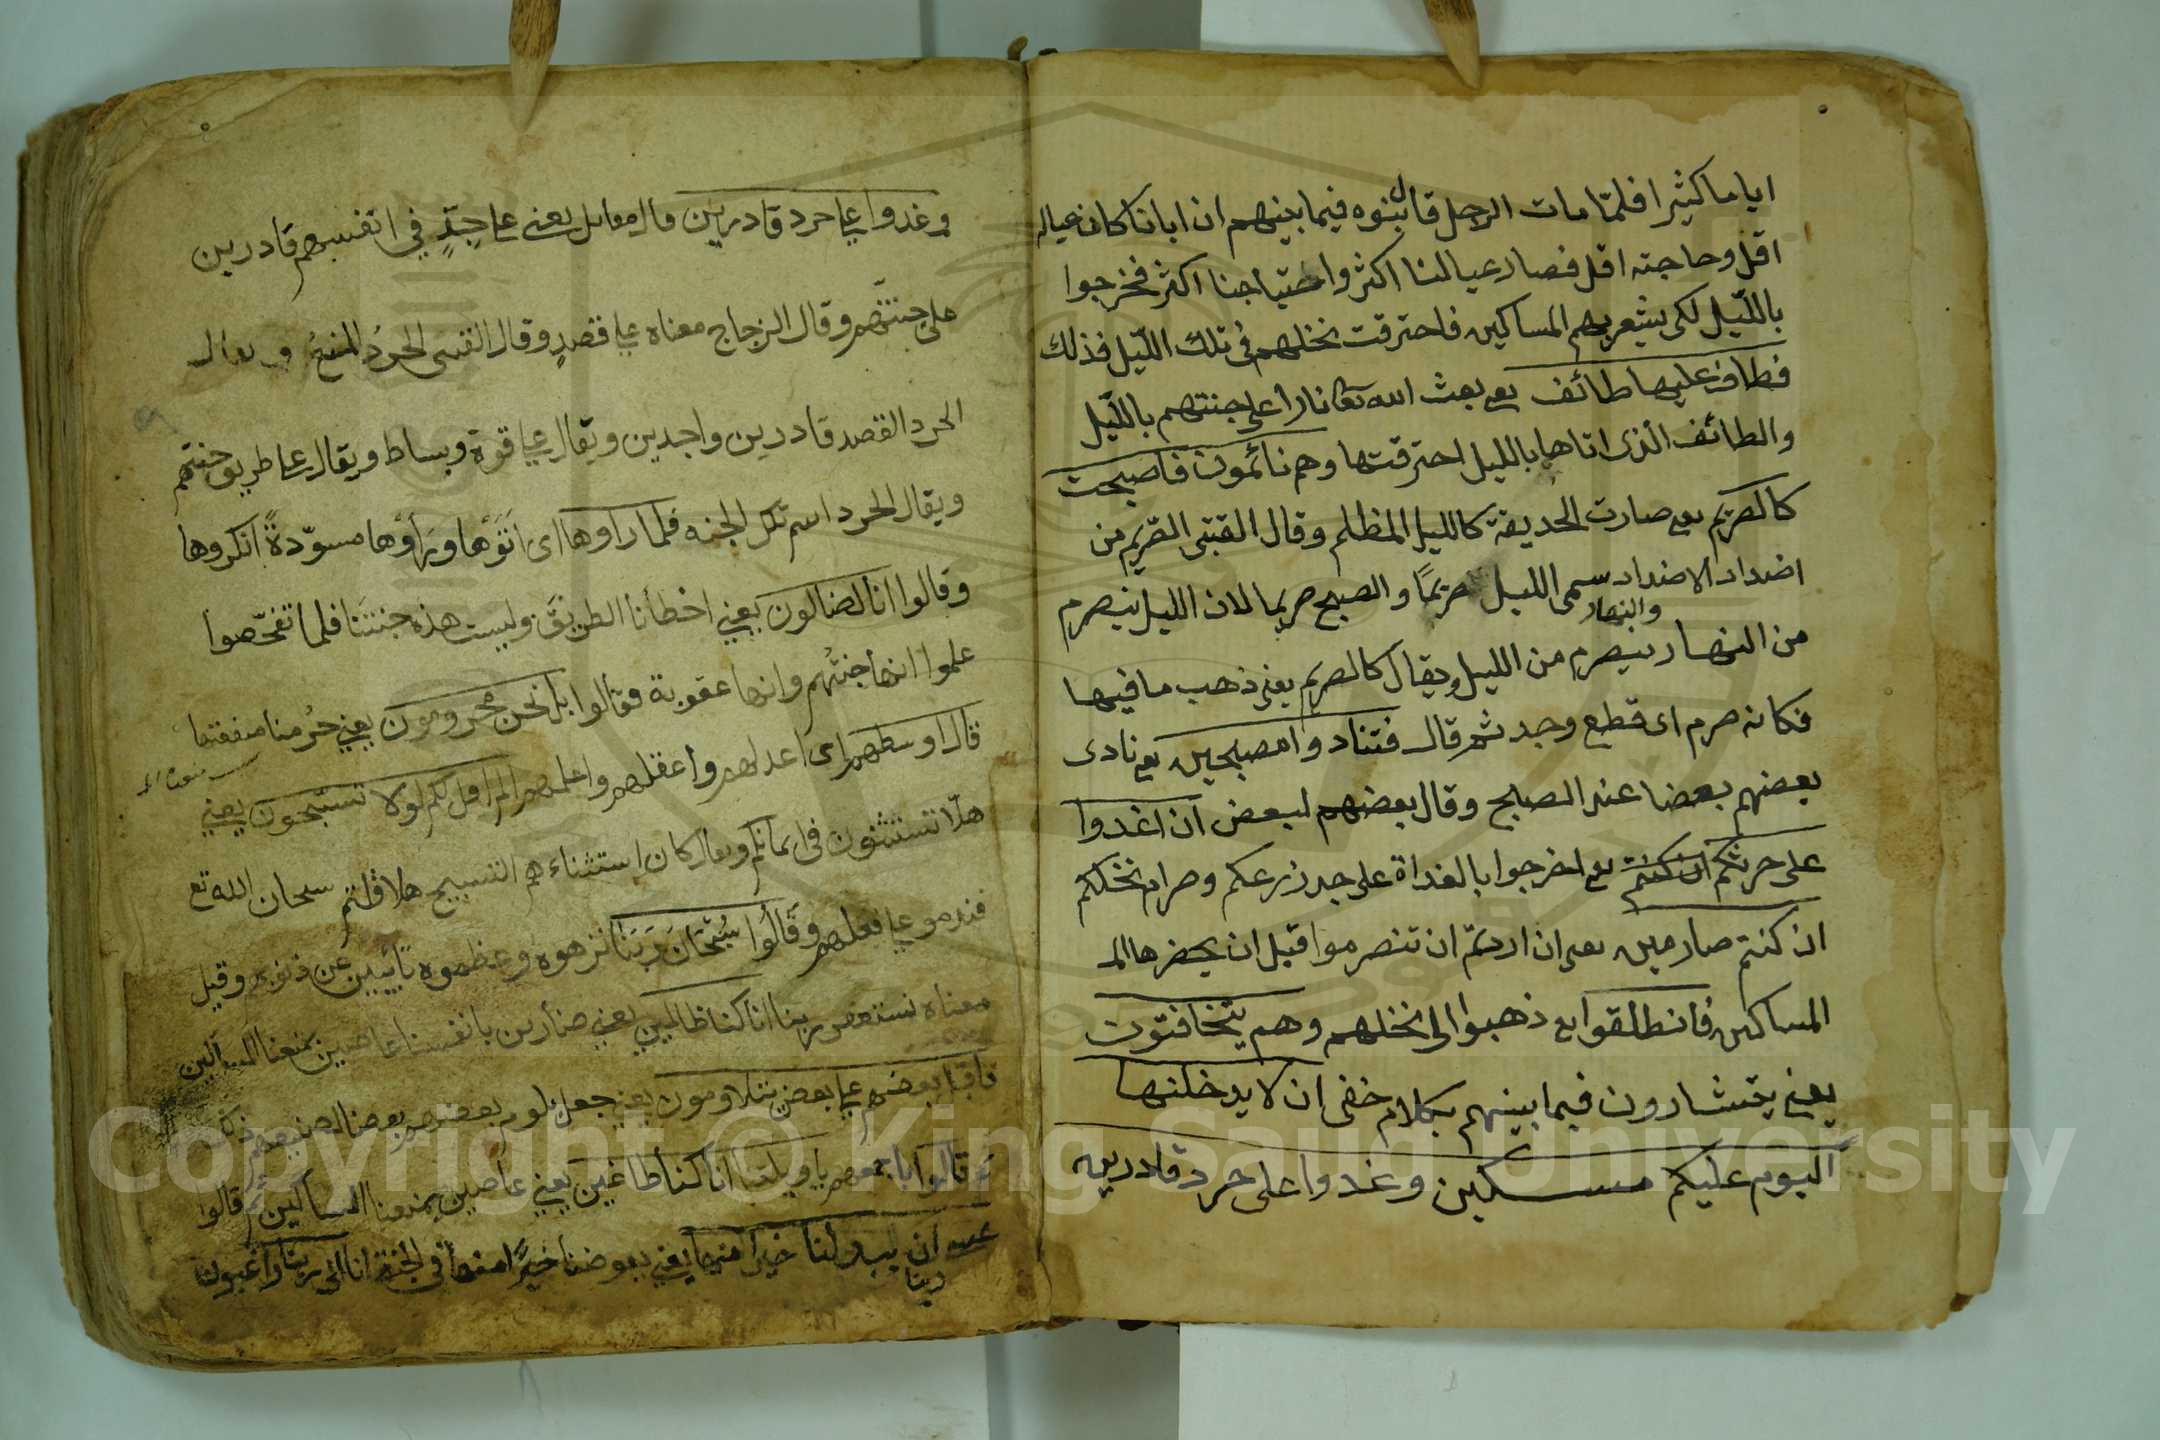 اياما كثيرا فلما مات الرجل قال بنوه فيما بينهم ان ابانا كان عياله
اقل وحاجته اقل فصار عيالنا اكثر واحتياجنا اكثر فخرجوا
بالليل لكى يشعر بهم المساكين فاحترقت نخلهم فى تلك الليل فذلك
فطاف عليها طائف يع بعث الله تعا نارا على جنتهم بالليل
والطائف الذى اتاها بالليل احترقتها وهم نائمون فاصبحت
كالصريم يع صارت الحديقة كالليل المظلم وقال القتبى الصريم من
اضداد الاضداد سمى الليل صريمًا والصبح صريما لان الليل ينصرم
والنهار
من النهار ينصرم من الليل ويقال كالصريم يعنى ذهب ما فيها
فكانه صرم اى قطع وجد ثم قال فتنادوا مصبحين يع نادى
بعضهم بعضا عند الصبح وقال بعضهم لبعض ان اغدوا
على حرثكم ان كنتم يع اخرجوا بالغداة على جد زرعكم وصرام نخلكم
ان كنتم صارمين يعى ان اردتم ان تنصرموا قبل ان يحضرها الم
المساكين فانطلقوا يع ذهبوا الى نخلهم وهم يتخافتون
يعنى يتشارون فيما بينهم بكلام خفى ان لا يدخلنها
اليوم عليكم مسكين وغدوا على حرد قادرين
وغدوا على حرد قادرين قال مقاتل يعنى على جدّةٍ في انفسهم قادرين
على جنتهم وقال الزجاج معناه على قصدٍ وقال القتبى الحردُ المنعُ ويقال
الحرد القصد قادرين واجدين ويقال على قوة وبساط ويقال على طريق جنتهم
ويقال الحرد اسم تلك الجنه فلما راوها اى اتَوْها ورَأوْها مسوّدةً انكروها
وقالوا انا لضالون يعني اخطأنا الطريقَ وليست هذه جنتَنا فلما تفحّصوا
علموا انها جنتُهم وانها عقوبة فقالوا بل نحن محرومون يعني حُرمنا منفعتها
قال اوسطهم اى اعدلهم وأعقلهم واعلمهم الم اقل لكم لولا تسبحون يعني
هلّا تستثنون في ايمانكم ويقال كان استثناءهم التسبيح هلا قلتم سبحان الله تع
فندموا على فعلهم وقَالُوا سُبْحَانَ رَبِّنَا نزهوه وعظموه تائبين عن ذنوبهم وقيل
معناه نستغفر ربنا انا كنا ظالمين يعني ضارين بانفسنا عاصين بمنعنا المساكين
فاقبل بعضهم على بعض يتلاومون يعني جعل يلوم بعضهم بعضا لصنيعهم ذلك
ثم قالوا باجمعهم يا ويلتنا انا كنا طاغين يعني عاصين بمنعنا المساكين ثم قالوا
عسى ان يبدلنا خيرا منها يعني يعوضنا خيرًا منها في الجنة انا الى ربنا راغبون
ربنا